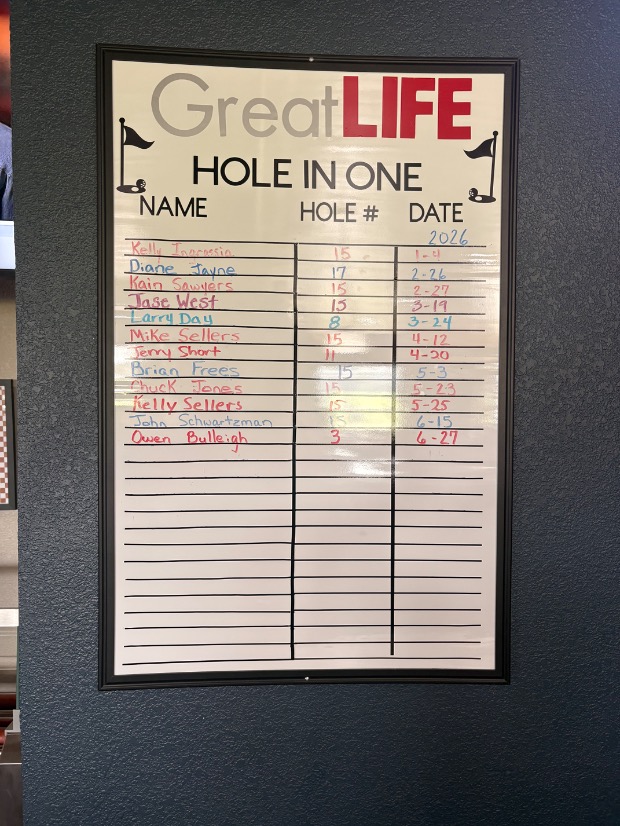 GreatLIFE
HOLE IN ONE
NAME HOLE # DATE
2026
Kelly Ingrassia 15 1-4
Diane Jayne 17 2-26
Kain Sawyers 15 2-27
Jase West 15 3-19
Larry Day 8 3-24
Mike Sellers 15 4-12
Jerry Short 11 4-20
Brian Frees 15 5-3
Chuck Jones 15 5-23
Kelly Sellers 15 5-25
John Schwartzman 15 6-15
Owen Bulleigh 3 6-27